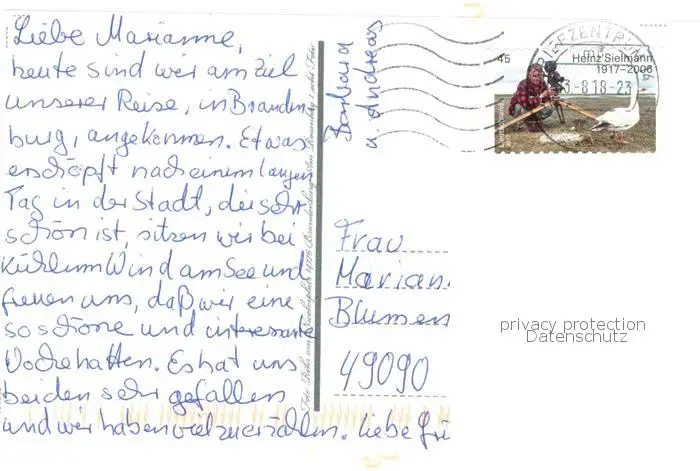 Liebe Marianne,
heute sind wir am Ziel
unserer Reise, in Branden
burg, angekommen. Etwas
erschöpft nach einem langen
Tag in der Stadt, die sehr
schön ist, sitzen wir bei
kühlem Wind am See und
freuen uns, daß wir eine
so schöne und interessante
Woche hatten. Es hat uns
beiden sehr gefallen
und wir haben viel zu erzählen. Liebe Grü
Barbara
u Andreas
45
Heinz Sielmann
1917–2006
BRIEFZENTRUM
-8.18-23
Frau
Marian
Blumen
49090
privacy protection
Datenschutz